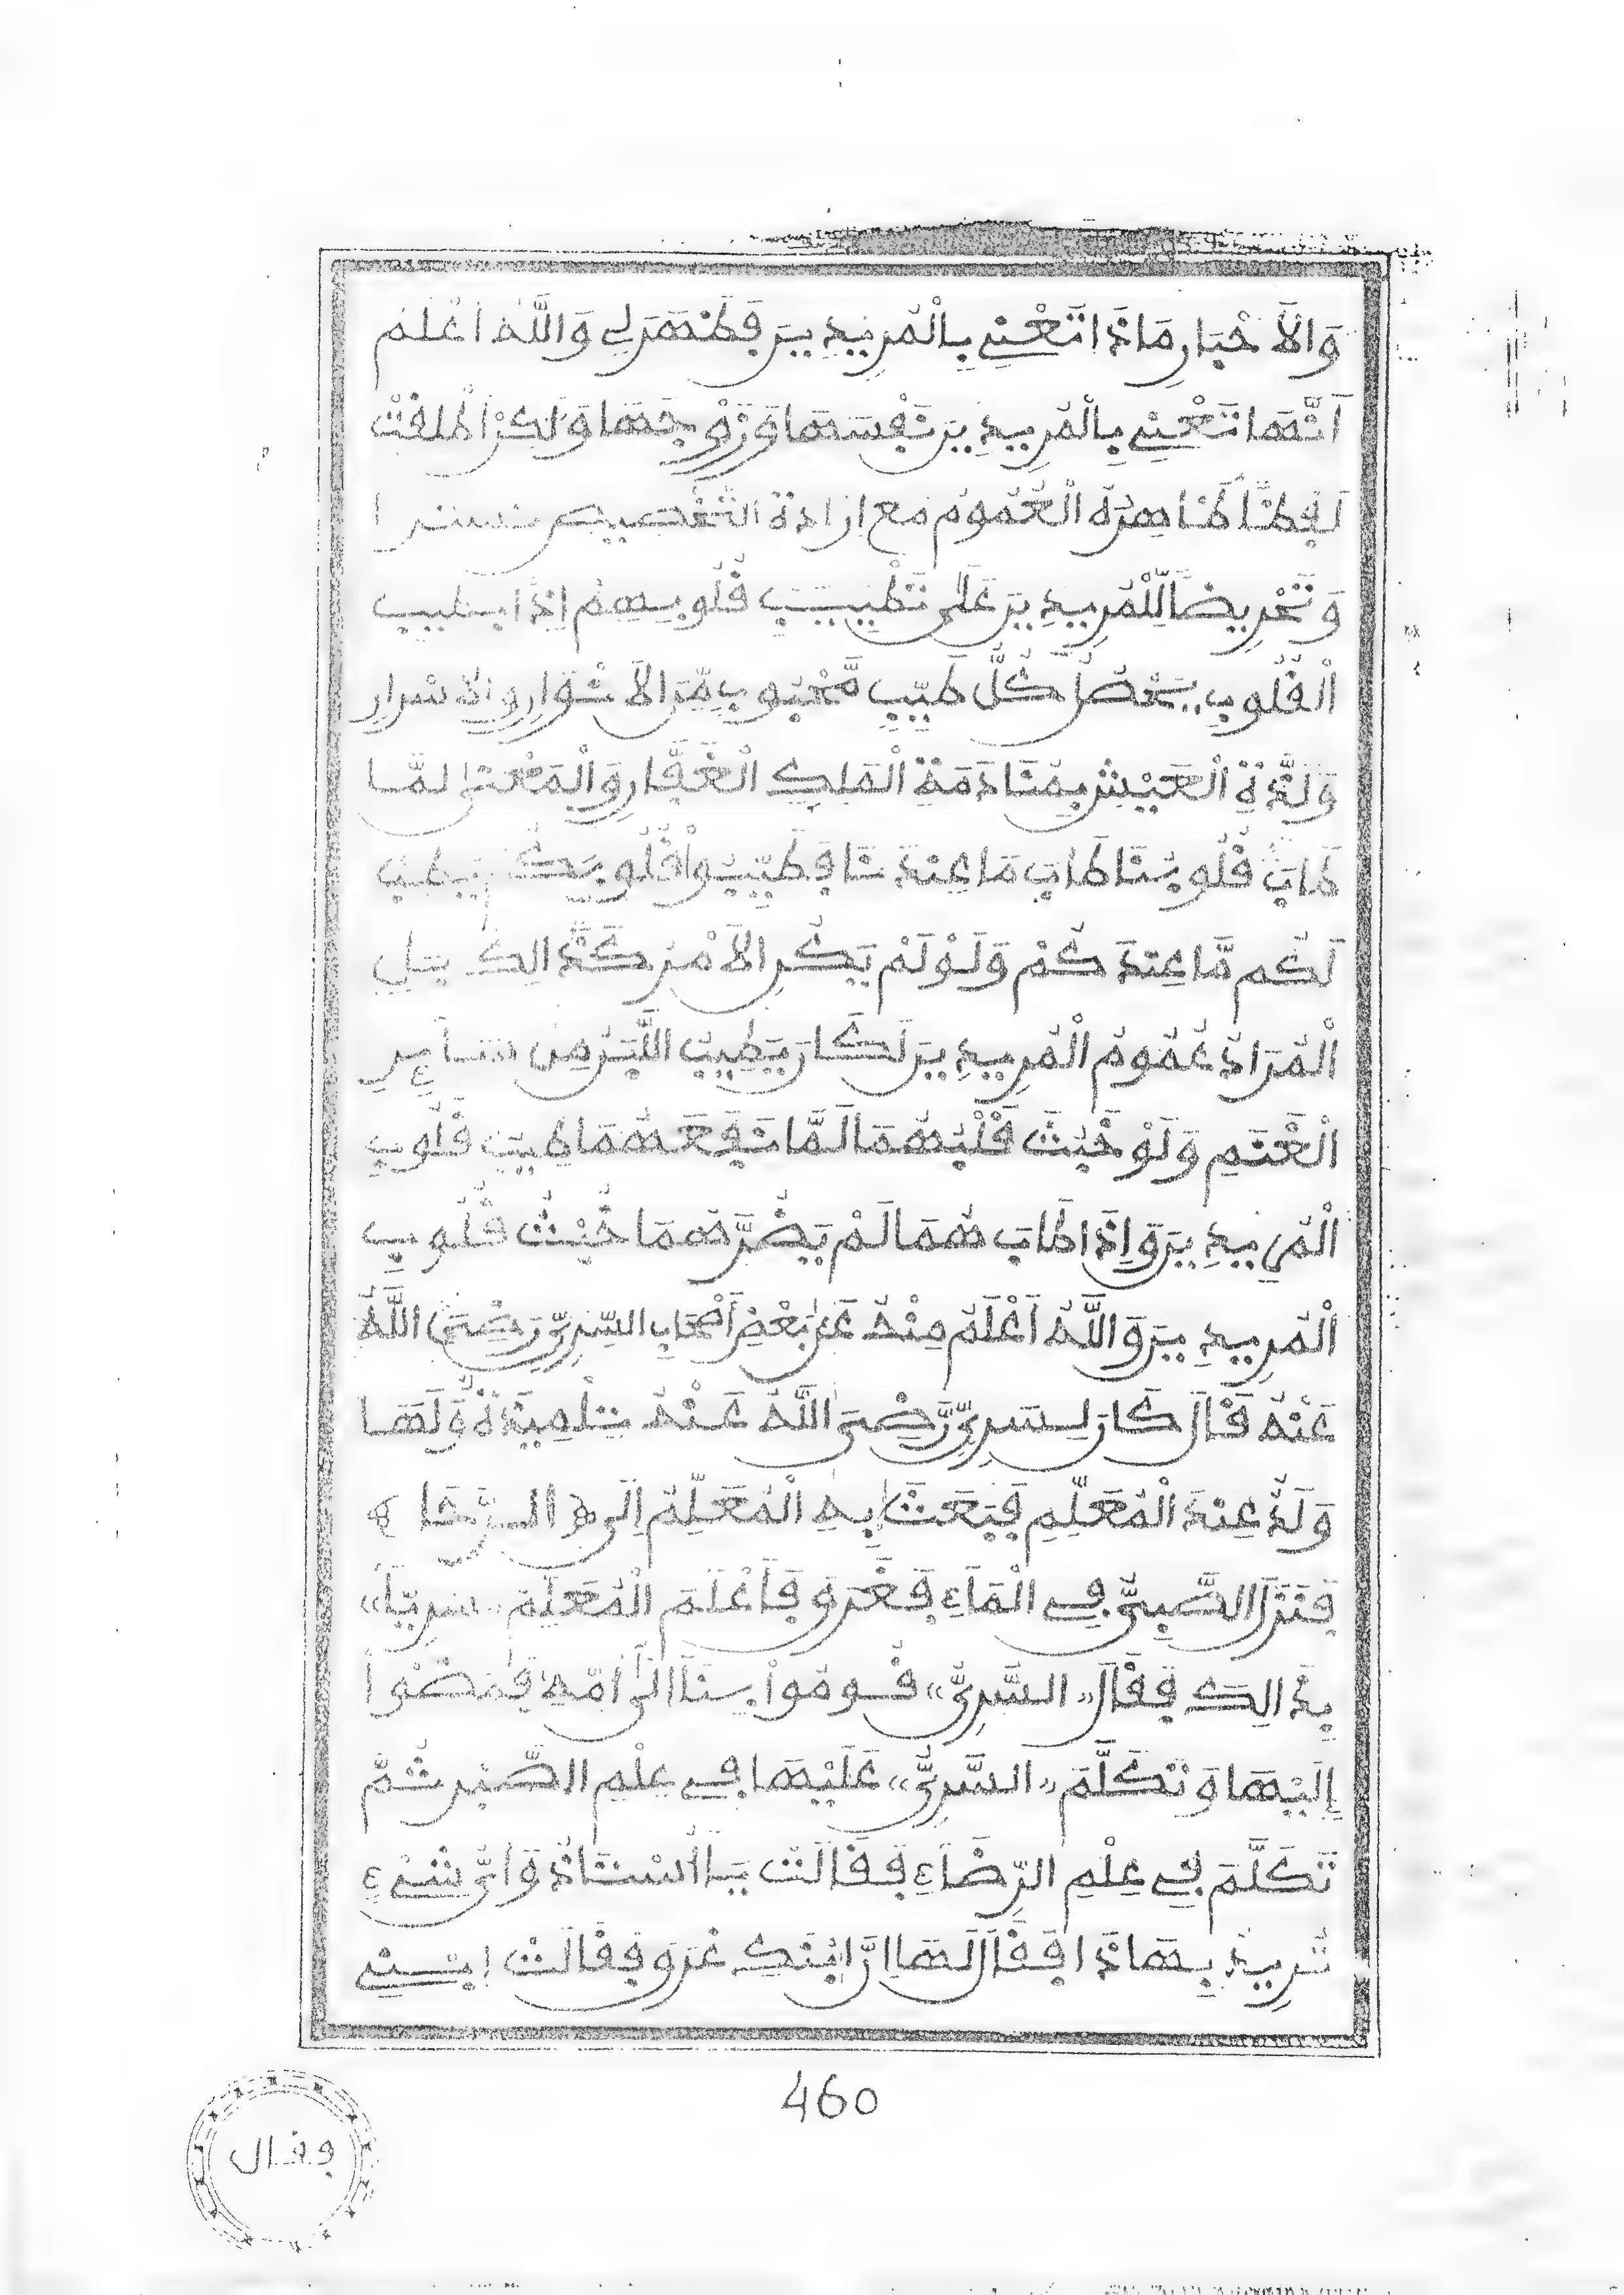 وَالاَخْبَارِ مَاذَا تَعْنِي بِالْمُرِيدِينَ فَظَهَرَ لِي وَاللَّهُ أَعْلَمُ
أَنَّهَا تَعْنِي بِالْمُرِيدِينَ نَفْسَهَا وَزَوْجَهَا وَلَكِنْ أَطْلَقَتْ
لَفْظًا ظَاهِرُهُ الْعُمُومُ مَعَ إِرَادَةِ التَّخْصِيصِ تَسَتُّرًا
وَتَحْرِيضًا لِلْمُرِيدِينَ عَلَى تَطْيِيبِ قُلُوبِهِمْ إِذَا بِطِيبِ
الْقُلُوبِ يَحْصُلُ كُلُّ طَيِّبٍ مَّحْبُوبٍ مِّنَ الاَنْوَارِ وَالاَسْرَارِ
وَلَذَّةِ الْعَيْشِ بِمُنَادَمَةِ الْمَلِكِ الْغَفَّارِ وَالْمَعْنَى لَمَّا
طَابَ قُلُوبُنَا طَابَ مَا عِنْدَنَا فَطَيِّبُوا قُلُوبَكُمْ يَطِبْ
لَكُم مَّا عِنْدَكُمْ وَلَوْ لَمْ يَكُنِ الاَمْرُ كَذَالِكَ بَلِ
الْمُرَادُ عُمُومُ الْمُرِيدِينَ لَكَانَ يَطِيبُ اللَّبَنُ مِن سَآئِرِ
الْغَنَمِ وَلَوْ خَبُثَ قَلْبُهُمَا لَمَّا نَفَعَهُمَا طِيبُ قُلُوبِ
الْمُرِيدِينَ وَإِذَا طَابَ هُمَا لَمْ يَضُرَّهُمَا خُبْثُ قُلُوبِ
الْمُرِيدِينَ وَاللَّهُ أَعْلَمُ مِنْهُ عَنْ بَعْضِ أَصْحَابِ السِّرِيِّ رَضِيَ اللَّهُ
عَنْهُ قَالَ كَانَ لِسَرِيٍّ رَّضِيَ اللَّهُ عَنْهُ تِلْمِيذَةٌ وَلَهَا
وَلَدٌ عِنْدَ الْمُعَلِّمِ فَبَعَثَ بِهِ الْمُعَلِّمُ إِلَى ﴿الرَّحَا﴾
فَنَزَلَ الصَّبِيُّ فِي الْمَآءِ فَغَرَقَ فَأَعْلَمَ الْمُعَلِّمُ «سَرِيًّا»
بِذَالِكَ فَقَالَ «السَّرِيُّ» قُومُوا بِنَا إِلَى أُمِّهِ فَمَضَوْا
إِلَيْهَا وَتَكَلَّمَ «السَّرِيُّ» عَلَيْهَا فِي عِلْمِ الصَّبْرِ ثُمَّ
تَكَلَّمَ فِي عِلْمِ الرِّضَآءِ فَقَالَتْ يَا أُسْتَاذُ وَأَيُّ شَيْءٍ
تُرِيدُ بِهَاذَا فَقَالَ لَهَا إِنَّ ابْنَكِ غَرَقَ فَقَالَتْ إِبْنِي
460
وفال